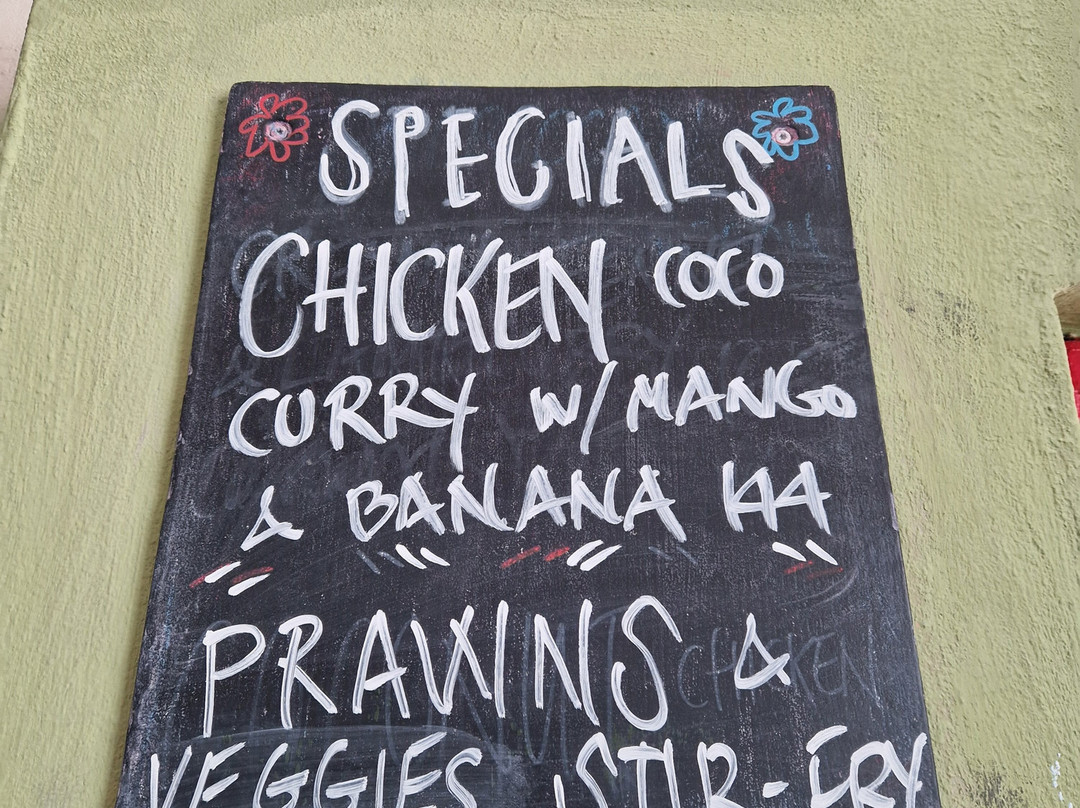 SPECIALS
CHICKEN COCO
CURRY W/ MANGO
& BANANA
PRAWNS &
CHICKEN
VEGGIES STIR-FRY